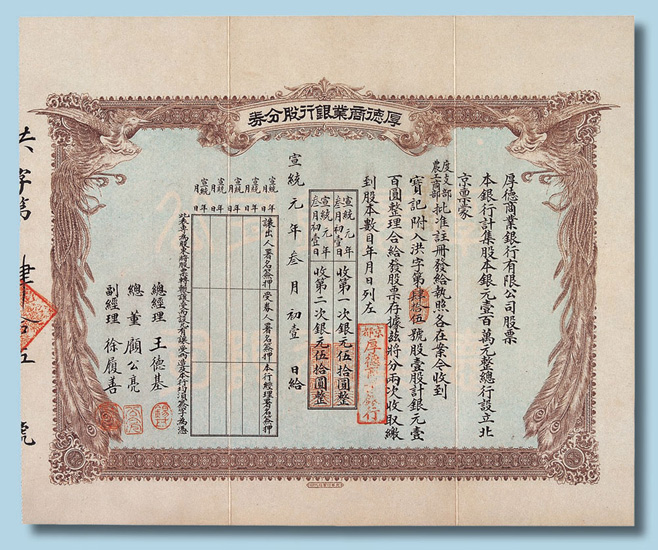 厚德商業銀行股分券
厚德商業銀行有限公司股票
本銀行計集股本銀元壹百萬元整總行設立北
京當蒙
度支部
農工商部
批准註冊發給執照各在案今收到
寶記附入洪字第肆拾伍號股壹股計銀元壹
百圓整理合給發股票存據茲將分兩次收取繳
到股本數目年月日列左
宣統元年叁月初壹日
收第一次銀元伍拾圓整
宣統元年叁月初壹日
收第二次銀元伍拾圓整
宣統元年叁月初壹日給
宣統 年 月 日
宣統 年 月 日
宣統 年 月 日
宣統 年 月 日
宣統 年 月 日
讓出人署名簽押
受券人署名簽押
本行經理署名簽押
總經理 王德基
總董 顧公亮
副經理 徐履善
洪字第肆拾伍號